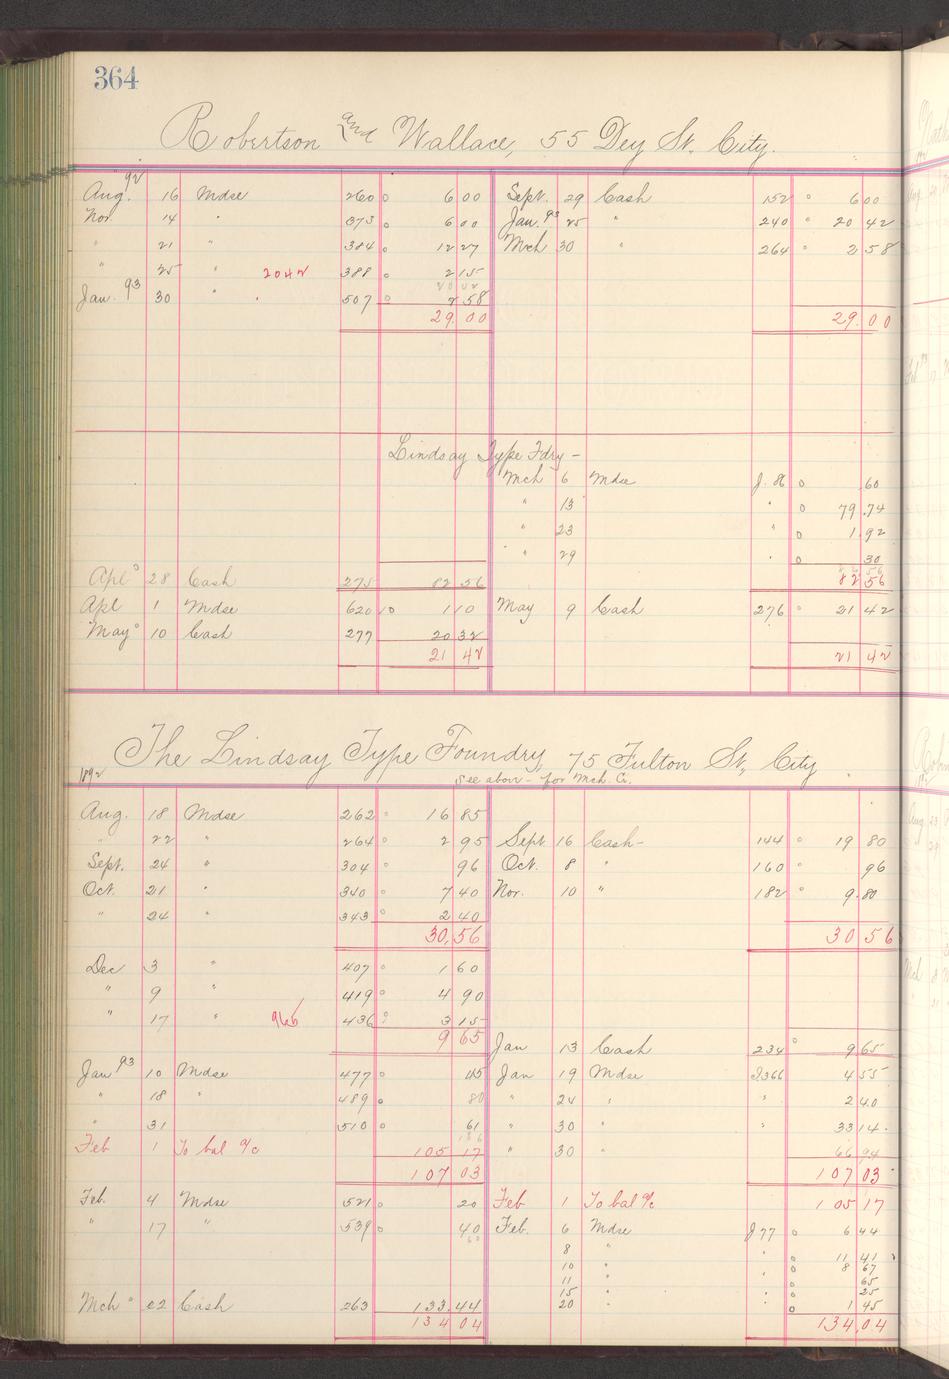 364
Robertson and Wallace, 55 Dey St. City.
92
Aug. 16 Mdse 260 o 6 00 Sept. 29 Cash 152 o 6 00
Nov 14 " 373 o 6 00 Jan. 93 25 " 240 o 20 42
" 21 " 384 o 12 27 Mch 30 " 264 o 2 58
" 25 " 2042 388 o 2 15
20 42
Jan. 93 30 " 507 o 2 58
29.00 29.00
Lindsay Type Fdry -
Mch 6 Mdse J. 86 o .60
" 13 " o 79.74
" 23 " o 1.92
" 29 " o 30
Apl 28 Cash 275 82 56 82 56
Apl 1 Mdse 620 o 1 10 May 9 Cash 276 o 21 42
May 10 Cash 277 20 32
21 42 21 42
The Lindsay Type Foundry, 75 Fulton St., City
1892 See above - for Mch. Cr.
Aug. 18 Mdse 262 o 16 85
" 22 " 264 o 2 95 Sept 16 Cash - 144 o 19 80
Sept. 24 " 304 96 Oct. 8 " 160 o 96
Oct. 21 " 340 o 7 40 Nov. 10 " 182 o 9.80
" 24 " 343 o 2 40
30,56 30 56
Dec 3 " 407 o 1 60
" 9 " 419 o 4 90
" 17 " 965 436 o 3 15
9 65 Jan 13 Cash 234 o 9 65
Jan 93 10 Mdse 477 o 45 Jan 19 Mdse J366 4 55
" 18 " 489 o 80 " 24 " " 2 40
" 31 510 o 61 " 30 " " 33 14
Feb 1 To bal a/c 105 17 " 30 " 66 94
107 03 107 03
Feb. 4 Mdse 521 o 20 Feb 1 To bal a/c 105 17
" 17 " 539 o 40 Feb. 6 Mdse J77 o 6 44
60
8 " " o 11 41
10 " o 8 67
11 " o 65
15 " o 25
Mch 22 Cash 263 133.44 20 " " o 1 45
134 04 134,04